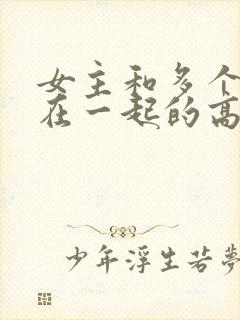 女主和多个
在一起的高
少年浮生若梦